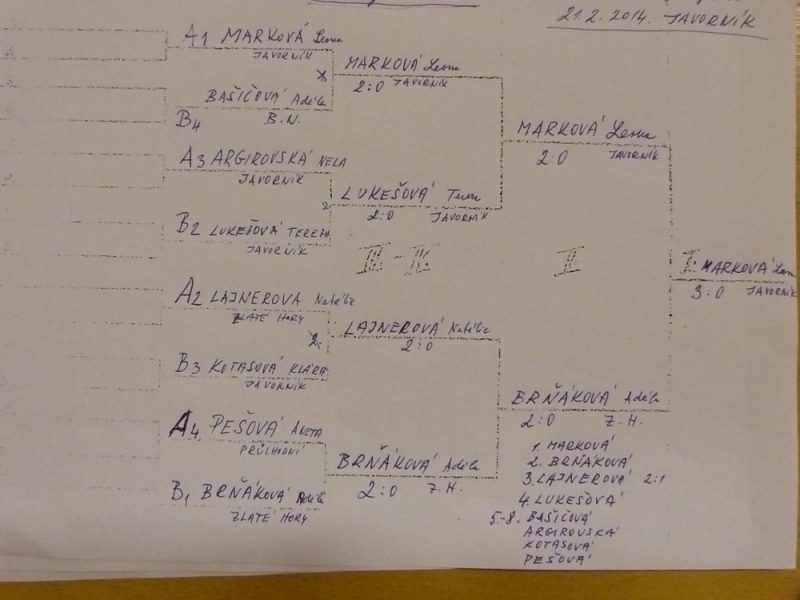 21.2. 2014. JAVORNÍK
A1 MARKOVÁ
JAVORNÍK
BAŠIČOVÁ Adéla
B4 B.N.
A3 ARGIROVSKÁ NELA
JAVORNÍK
B2 LUKEŠOVÁ TEREZA
JAVORNÍK
A2 LAJNEROVA Natálie
ZLATÉ HORY
B3 KOTASOVÁ KLÁRA
JAVORNÍK
A4 PEŠOVÁ ANETA
PRŮCHODNÍ
B1 BRŇÁKOVÁ Adéla
ZLATÉ HORY
MARKOVÁ
2:0 JAVORNÍK
LUKEŠOVÁ
2:0 JAVORNÍK
III - IV
LAJNEROVÁ Natálie
2:0
BRŇÁKOVÁ Adéla
2:0 Z.H.
MARKOVÁ
2:0 JAVORNÍK
II
BRŇÁKOVÁ Adéla
2:0 Z.H.
I. MARKOVÁ
3:0 JAVORNÍK
1. MARKOVÁ
2. BRŇÁKOVÁ
3. LAJNEROVÁ 2:1
4. LUKEŠOVÁ
5.-8. BAŠIČOVÁ
ARGIROVSKÁ
KOTASOVÁ
PEŠOVÁ